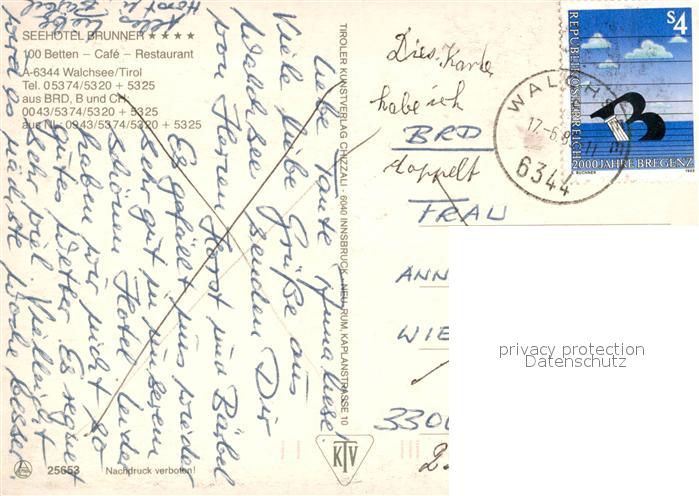 SEEHOTEL BRUNNER ★ ★ ★ ★
100 Betten – Café – Restaurant
A-6344 Walchsee/Tirol
Tel. 05374/5320 + 5325
aus BRD, B und CH:
0043/5374/5320 + 5325
aus NL: 0943/5374/5320 + 5325
Liebe Tante Annaliese!
Viele liebe Grüße aus
Walchsee senden Dir
von Herzen Horst und Bärbel
Es gefällt uns wieder
sehr gut in unserem
schönen Hotel leider
haben wir nicht so
gutes Wetter. Es regnet
sehr viel. Vielleicht
wird es nächste Woche besser.
Alles
Liebe
Horst u. Bärbel
TIROLER KUNSTVERLAG CHIZZALI · 6040 INNSBRUCK - NEU-RUM, KAPLANSTRASSE 10
Dies. Karte
habe ich
doppelt
BRD
FRAU
ANN
WIE
3300
KTV
25653
Nachdruck verboten!
WALCH
17.-6.8
6344
S 4
REPUBLIK ÖSTERREICH
B
2000 JAHRE BREGENZ
BUCHNER
privacy protection
Datenschutz